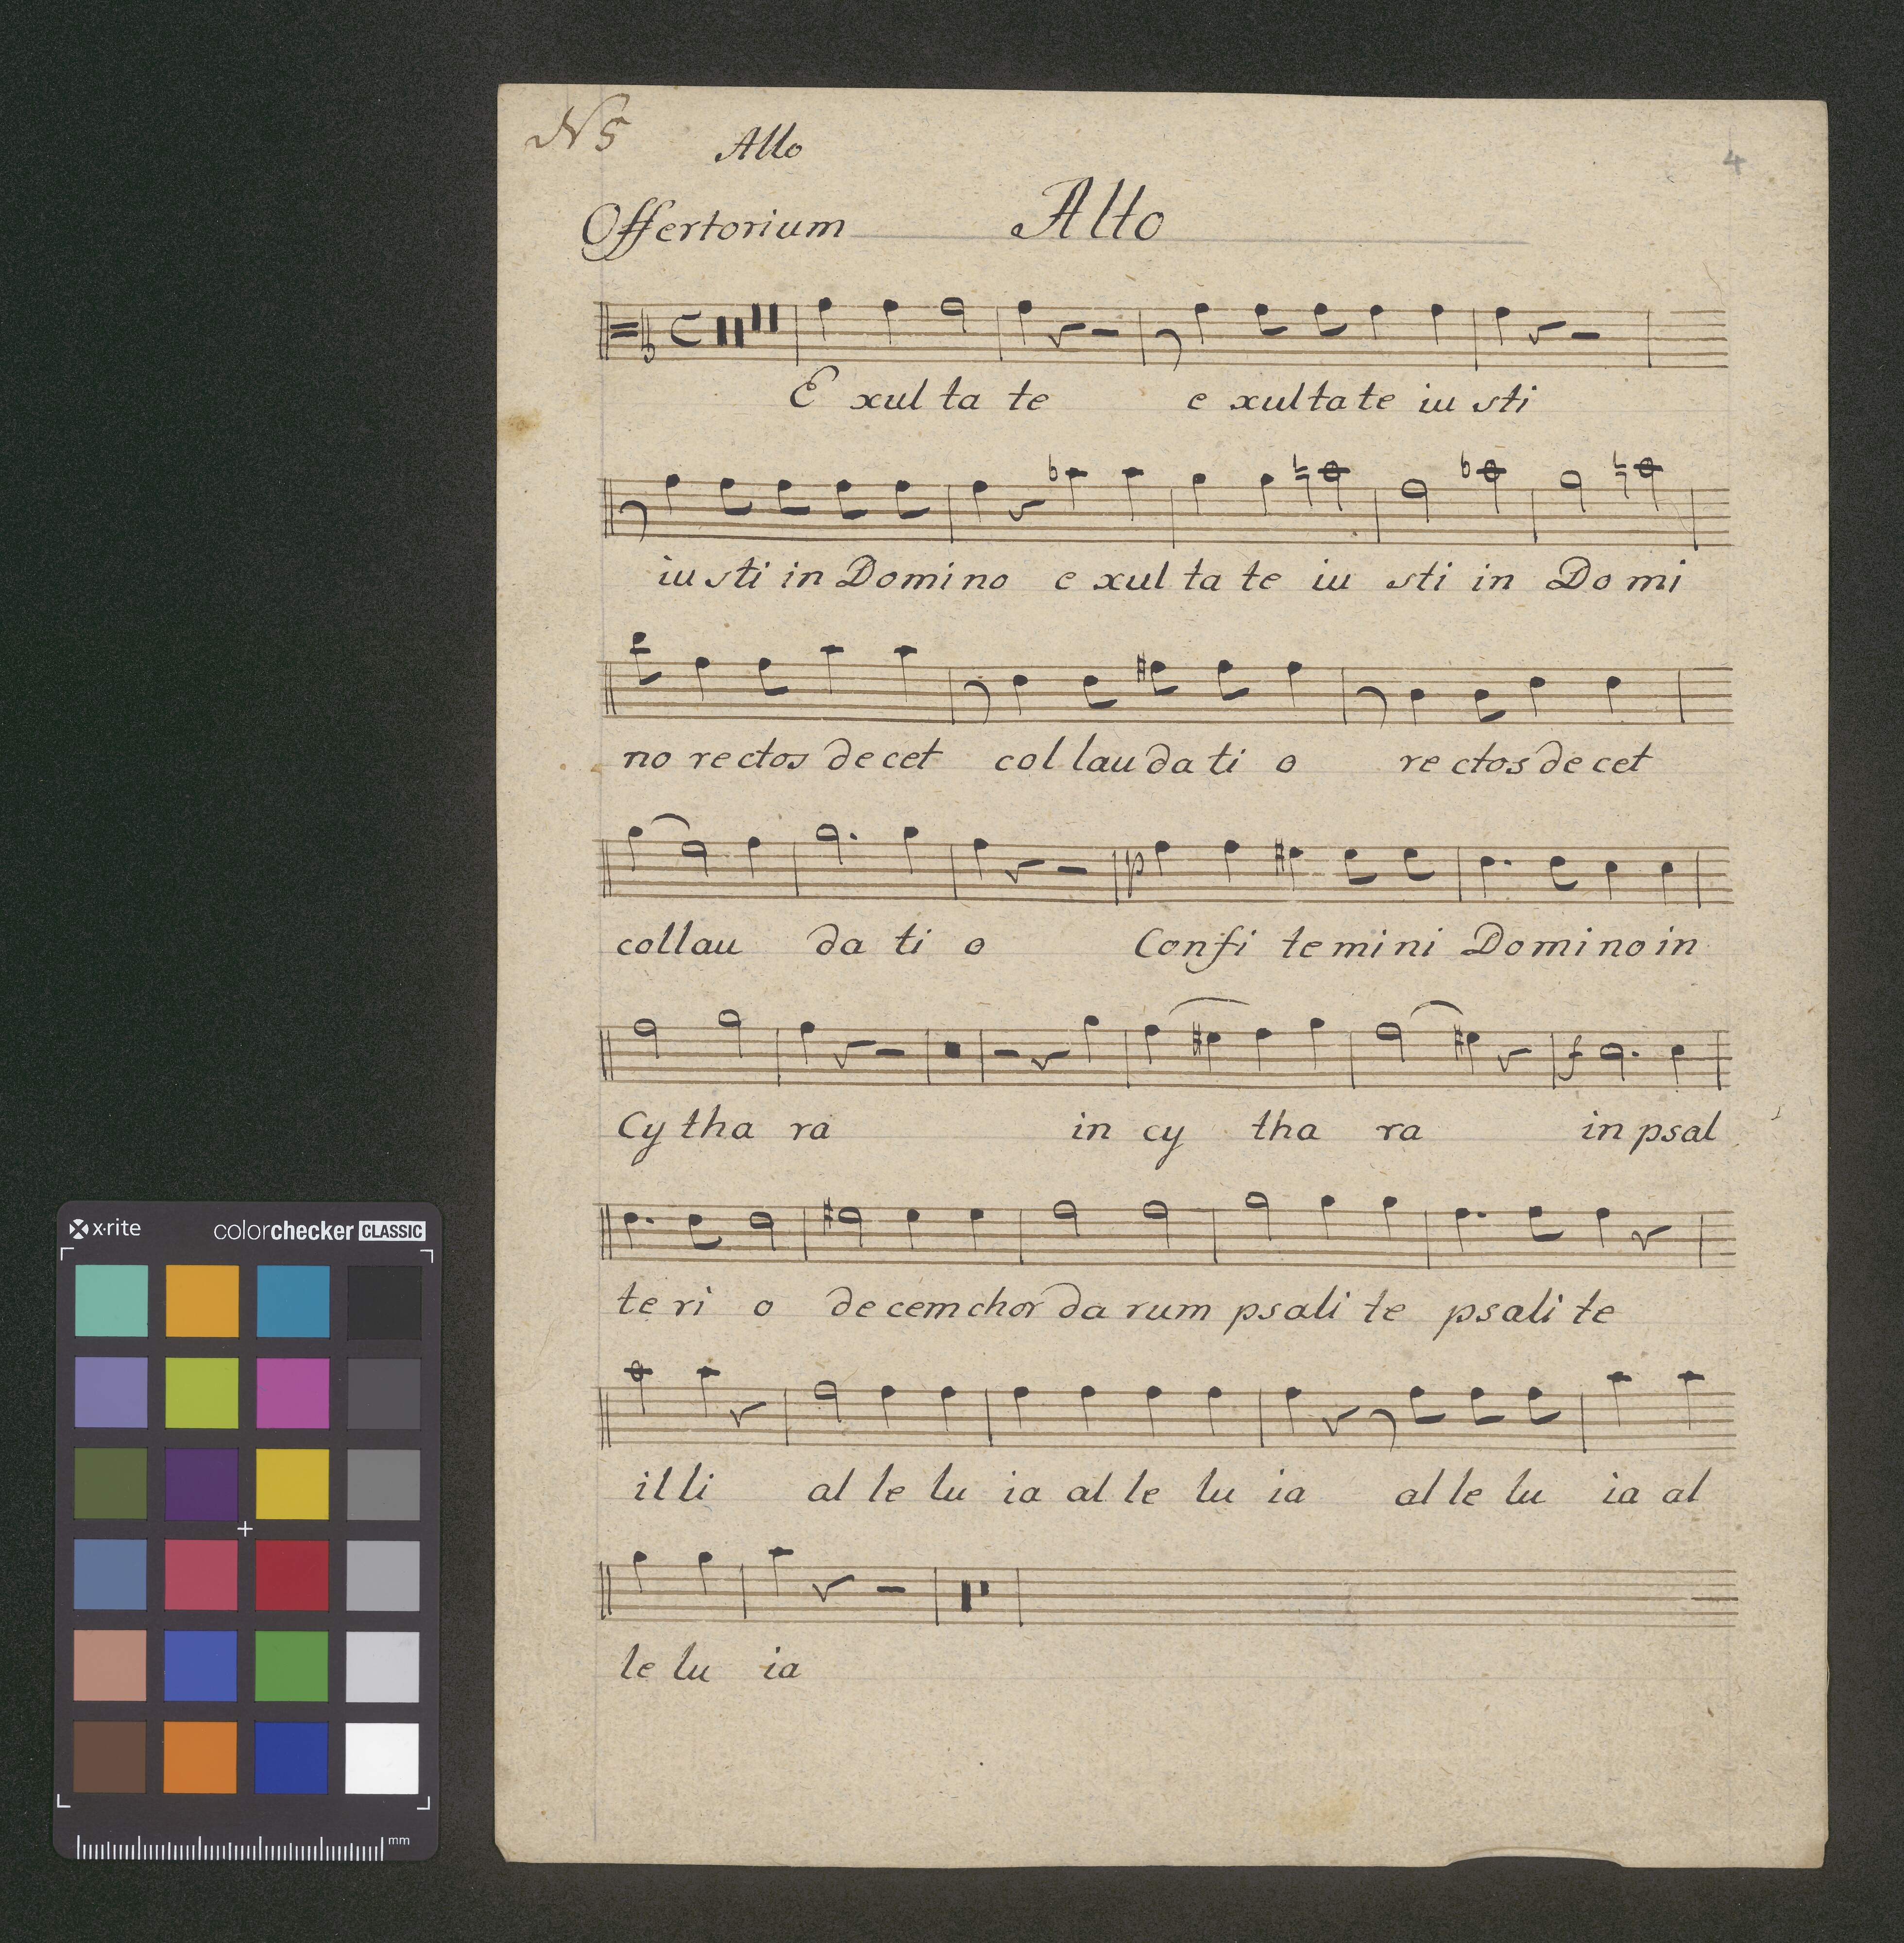 N 5
Allo
4
Offertorium Alto
E xul ta te e xul ta te iu sti
iu sti in Do mi no e xul ta te iu sti in Do mi
no re ctos de cet col lau da ti o re ctos de cet
p
col lau da ti o Confi te mi ni Do mi no in
f
Cy tha ra in cy tha ra in psal
te ri o de cem chor da rum psa li te psa li te
il li al le lu ia al le lu ia al le lu ia al
le lu ia
x·rite colorchecker CLASSIC
mm